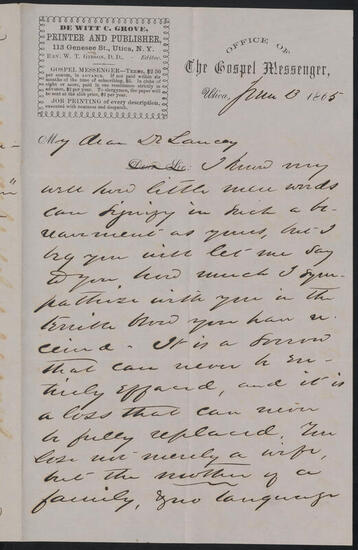 DE WITT C. GROVE,
PRINTER AND PUBLISHER,
113 Genesee St., Utica, N. Y.
Rev. W. T. Gibson, D. D., - Editor.
GOSPEL MESSENGER—Terms, $2 50
per annum, in advance. If not paid within six
months of the time of subscribing, $3. In clubs of
eight or more, paid in one remittance strictly in
advance, $2 per annum. To clergymen, the paper will be
sent at the club price, $2 per year.
JOB PRINTING of every description,
executed with neatness and dispatch.
OFFICE OF
The Gospel Messenger,
Utica, June 3 1865
My dear Dr Lancey,
Dear Sir: I know very
well how little mere words
can signify in such a be-
reavement as yours, but I
beg you will let me say
to you how much I sym-
pathize with you in the
terrible blow you have re-
ceived. It is a sorrow
that can never be en-
tirely effaced, and it is
a loss that can never
be fully replaced. You
lose not merely a wife,
but the mother of a
family, & no language